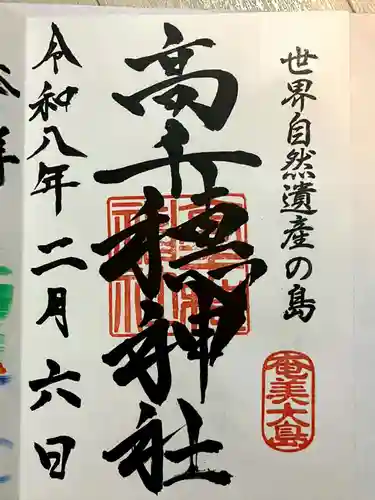 世界自然遺産の島
奄美大島
高千穂神社
令和八年二月六日
拝